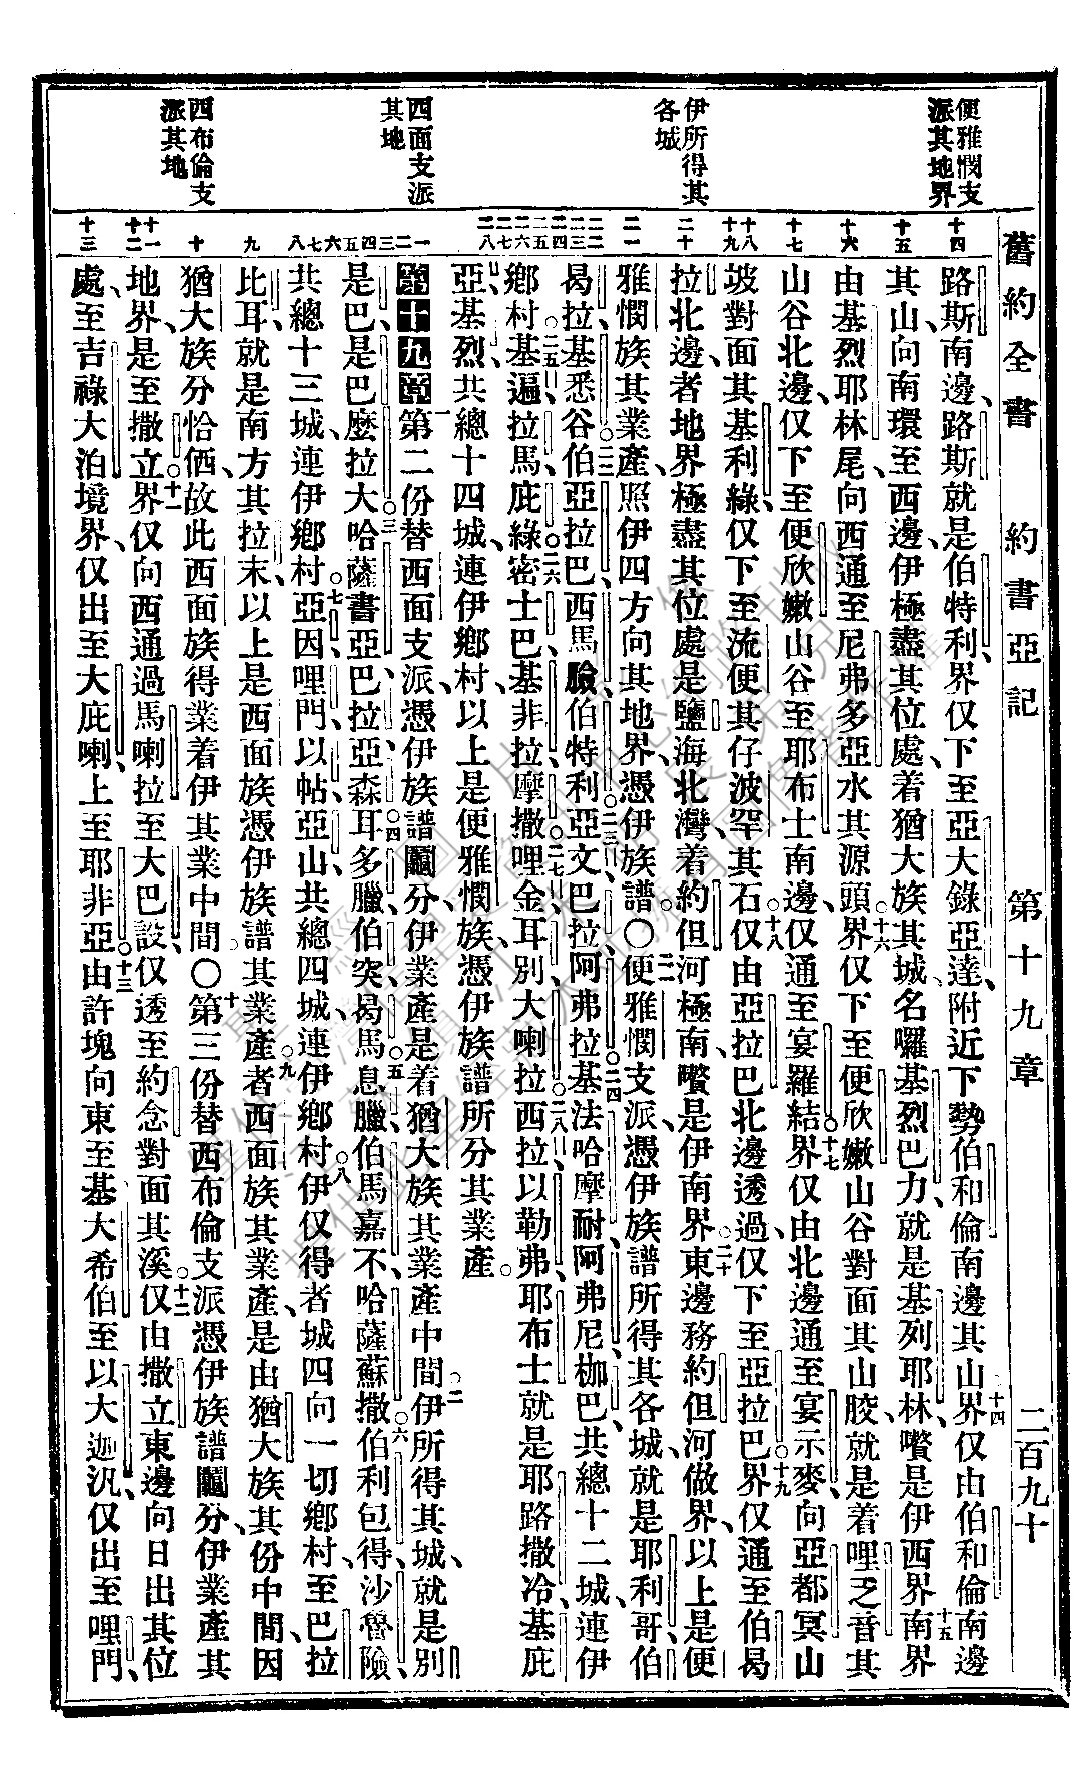 舊約全書 約書亞記 第十九章 二百九十
便雅憫支派其地界
伊所得其各城
四面支派其地
西布倫支派其地
十四 十五 十六 十七 十八 十九 二十 二一 二二 二三 二四 二五 二六 二七 二八 一 二 三 四 五 六 七 八 九 十 十一 十二 十三
路斯南邊、路斯就是伯特利界仅下至亞大錄亞達、附近下勢伯和倫南邊其山○十四界仅由伯和倫南邊
其山、向南環至西邊、伊極盡其位處着猶大族其城、名囉基烈巴力、就是基列耶林、嚽是伊西界○十五南界
由基烈耶林尾、向西通至尼弗多亞水其源頭○十六界仅下至便欣嫩山谷對面其山𨂿、就是着哩乏音其
山谷北邊、仅下至便欣嫩山谷、至耶布士南邊、仅通至宴羅結○十七界仅由北邊通至宴示麥、向亞都冥山
坡對面其基利綠、仅下至流便其仔波罕其石○十八仅由亞拉巴北邊透過、仅下至亞拉巴○十九界仅通至伯曷
拉北邊、者地界、極盡其位處、是鹽海北灣、着約但河極南、嚽是伊南界○二十東邊務約但河做界、以上是便
雅憫族其業產、照伊四方向其地界、憑伊族譜○二一便雅憫支派、憑伊族譜所得其各城、就是耶利哥、伯
曷拉、基悉谷○二二伯亞拉巴、西馬臉、伯特利○二三亞文、巴拉、阿弗拉○二四基法哈摩耐、阿弗尼、枷巴、共總十二城、連伊
鄉村○二五基遍、拉馬、庇綠○二六密士巴、基非拉、摩撒○二七哩金、耳別、大喇拉○二八西拉、以勒弗、耶布士就是耶路撒冷、基庇
亞、基烈、共總十四城、連伊鄉村、以上是便雅憫族、憑伊族譜所分其業產。
第十九章 一第二份替西面支派、憑伊族譜鬮分、伊業產是着猶大族其業產中間○二伊所得其城、就是別
是巴、是巴、麼拉大○三哈薩書亞、巴拉、亞森○四耳多臘、伯突、曷馬○五息臘、伯馬嘉不、哈薩蘇撒○六伯利包得、沙魯險、
共總十三城、連伊鄉村○七亞因、哩門、以帖、亞山、共總四城、連伊鄉村○八伊仅得者城四向一切鄉村、至巴拉
比耳、就是南方其拉末、以上是西面族憑伊族譜其業產○九者西面族其業產、是由猶大族其份中間、因
猶大族分恰価、故此西面族得業着伊其業中間○十第三份替西布倫支派、憑伊族譜鬮分、伊業產其
地界、是至撒立○十一界仅向西通過馬喇拉、至大巴設、仅透至約念對面其溪○十二仅由撒立東邊向日出其位
處、至吉祿大泊境界、仅出至大庇喇、上至耶非亞○十三由許塊向東至基大希伯、至以大迦汎、仅出至哩門、